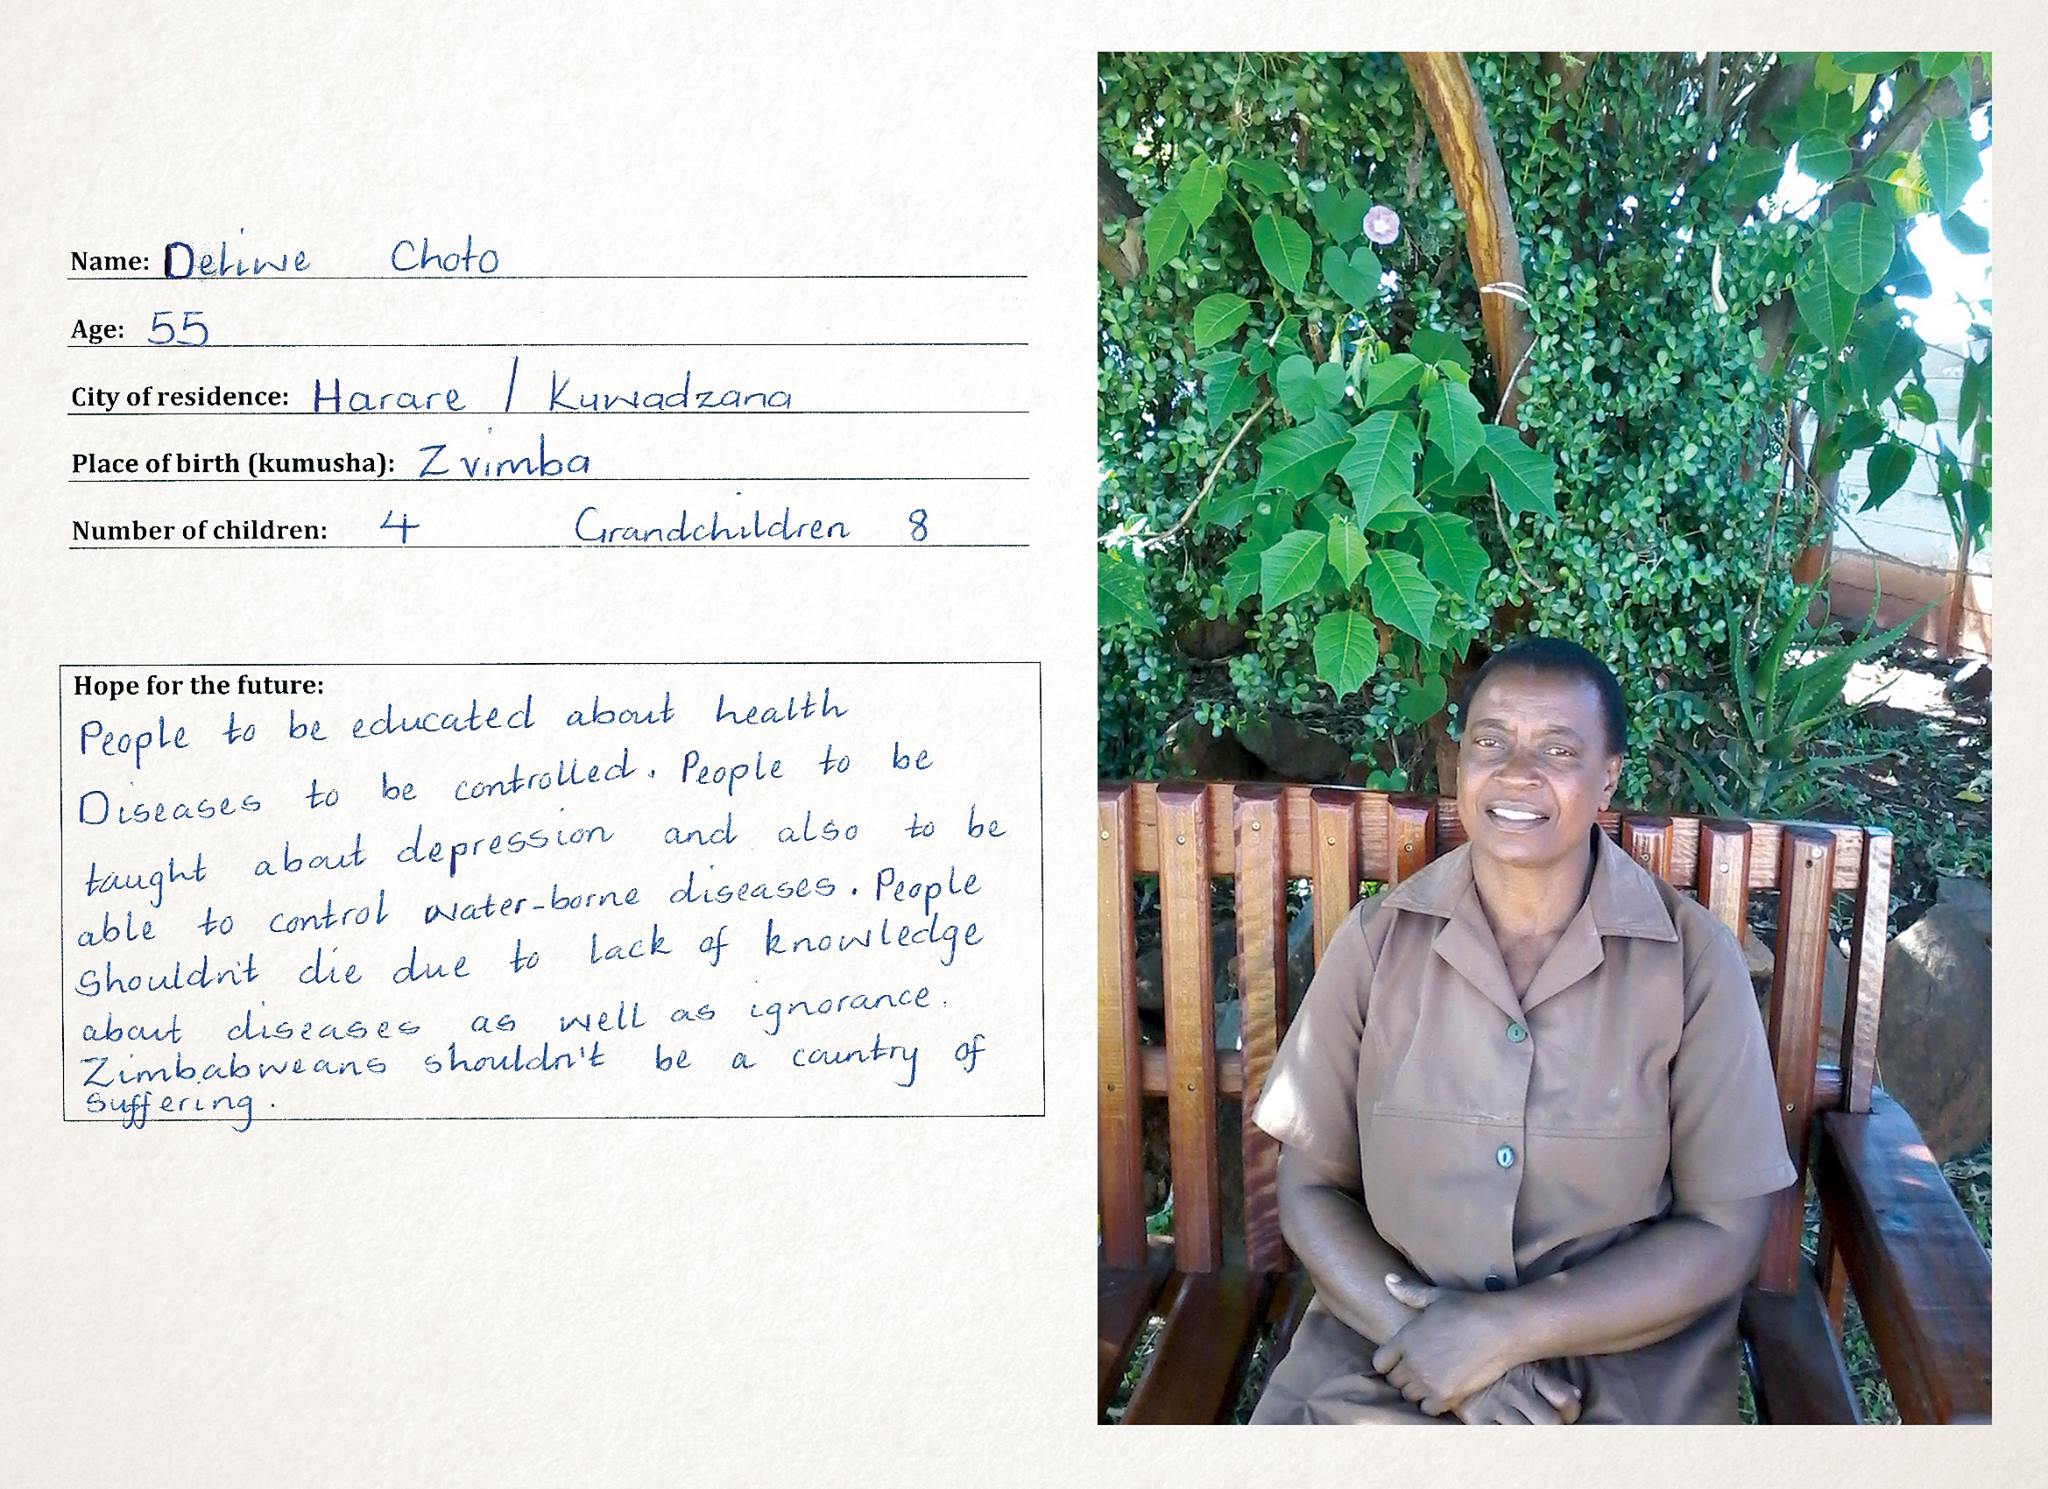 Name: Deliwe Choto
Age: 55
City of residence: Harare / Kuwadzana
Place of birth (kumusha): Zvimba
Number of children: 4 Grandchildren 8
Hope for the future:
People to be educated about health
Diseases to be controlled. People to be
taught about depression and also to be
able to control water-borne diseases. People
shouldn't die due to lack of knowledge
about diseases as well as ignorance.
Zimbabweans shouldn't be a country of
suffering.